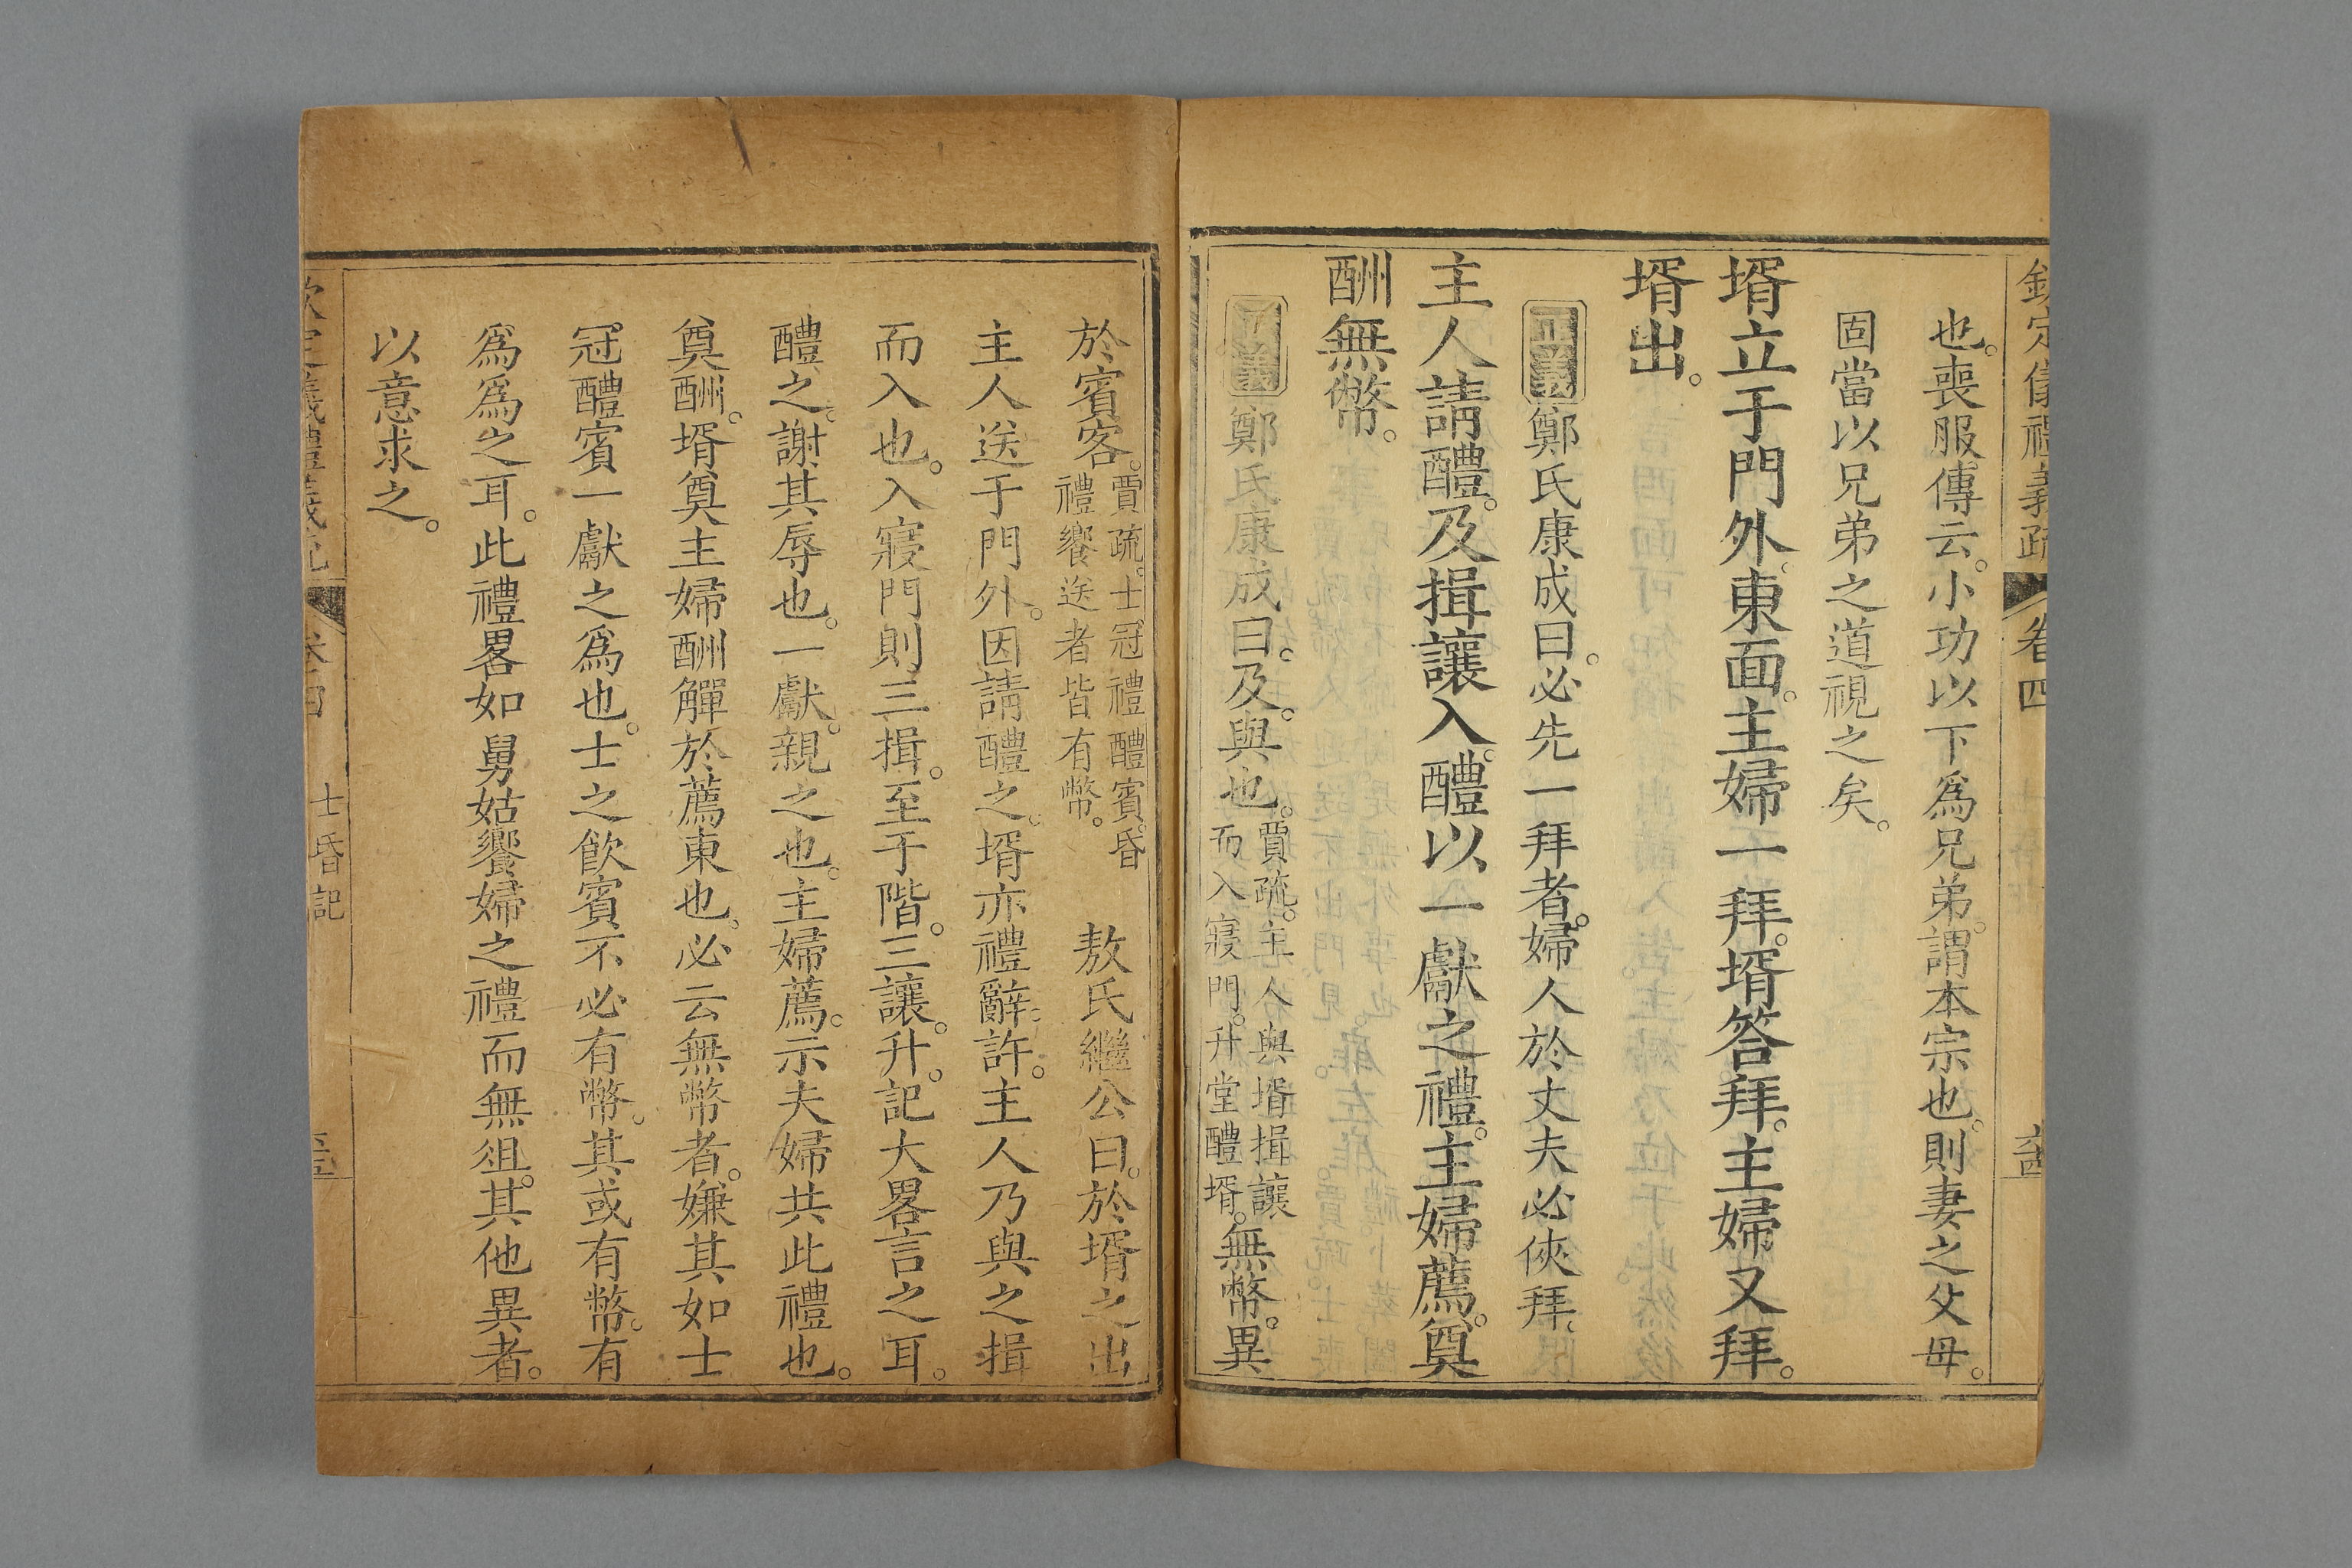 欽定儀禮義疏 卷四 六西
也。喪服傳云。小功以下爲兄弟。謂本宗也。則妻之父母。
固當以兄弟之道視之矣。
壻立于門外。東面。主婦一拜。壻答拜。主婦又拜。
壻出。
正義鄭氏康成曰。必先一拜者。婦人於丈夫必俠拜。
主人請醴。及揖讓入。醴以一獻之禮。主婦薦。奠
酬無幣。
正義鄭氏康成曰。及。與也。賈疏。主人與壻揖讓而入寢門。升堂醴壻。無幣。異
於賓客。賈疏。士冠禮醴賓。昏禮饗送者皆有幣。 敖氏繼公曰。於壻之出
主人送于門外。因請醴之。壻亦禮辭。許。主人乃與之揖
而入也。入寢門則三揖。至于階。三讓。升。記大畧言之耳。
醴之。謝其辱也。一獻。親之也。主婦薦。示夫婦共此禮也。
奠酬。壻奠主婦酬觶於薦東也。必云無幣者。嫌其如士
冠醴賓一獻之爲也。士之飲賓不必有幣。其或有幣。有
爲爲之耳。此禮畧如舅姑饗婦之禮而無俎。其他異者。
以意求之。
士昏記